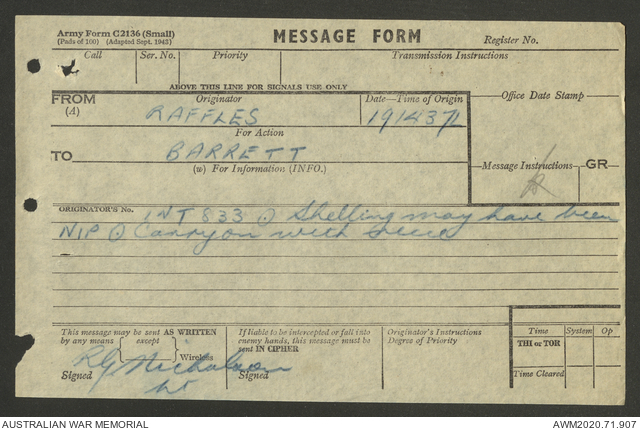 Army Form C2136 (Small)
(Pads of 100) (Adapted Sept. 1942)
MESSAGE FORM
Register No.
Call
Ser. No.
Priority
Transmission Instructions
ABOVE THIS LINE FOR SIGNALS USE ONLY
FROM
(A)
Originator
RAFFLES
Date—Time of Origin
191437L
Office Date Stamp
For Action
TO
BARRETT
(w) For Information (INFO.)
Message Instructions
GR
ORIGINATOR'S No.
INT 833 ⊙ Shelling may have been
NIP ⊙ Carry on with
This message may be sent AS WRITTEN
by any means { except } Wireless
Signed
Nicholson
Lt
If liable to be intercepted or fall into
enemy hands, this message must be
sent IN CIPHER
Signed
Originator's Instructions
Degree of Priority
Time
System
Op
THI or TOR
Time Cleared
AUSTRALIAN WAR MEMORIAL
AWM2020.71.907